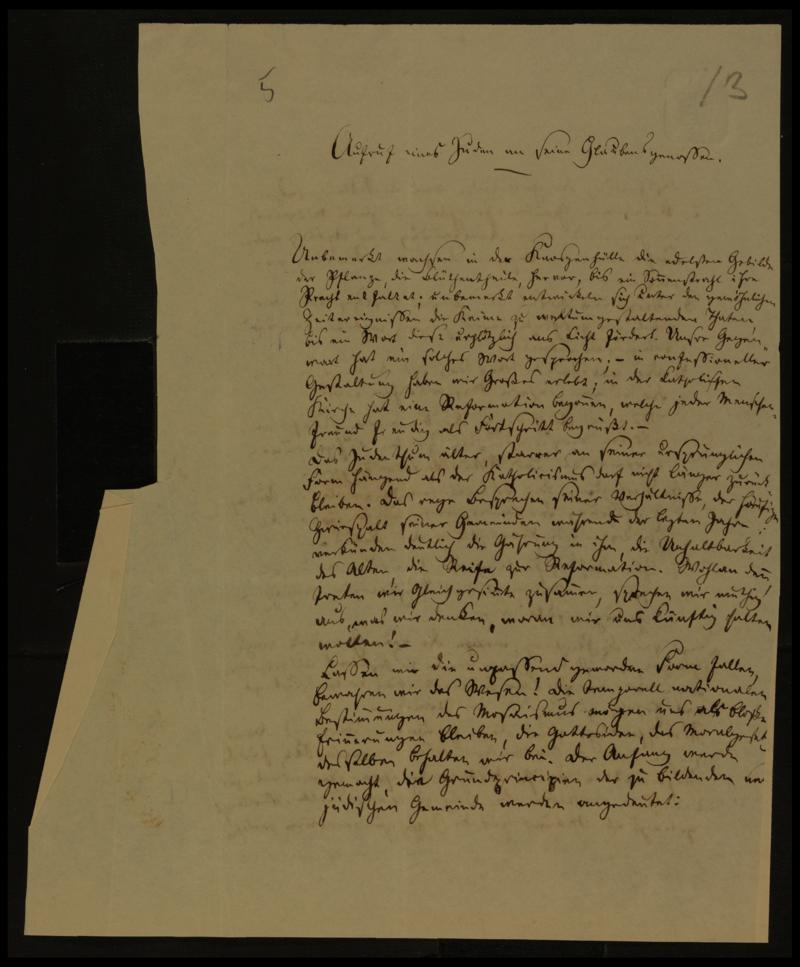 5
13
Aufruf eines Juden an seine Glaubensgenossen.
Unbemerkt wachsen in der Knospenhülle die edelsten Gebilde
der Pflanze, die Blüthentheile, hervor, bis ein Sonnenstrahl ihre
Pracht entfaltet; unbemerkt entwickeln sich unter den gewöhnlichen
Zeitereignissen die Keime zu weltumgestaltenden Thaten
bis ein Wort diese urplötzlich ans Licht fördert. Unsre Gegen-
wart hat ein solches Wort gesprochen; – in confessioneller
Gestaltung haben wir Großes erlebt; in der katholischen
Kirche hat eine Reformation begonnen, welche jeder Menschen-
freund freudig als Fortschritt begrüßt. –
Das Judenthum älter, starrer an seiner ursprünglichen
Form hängend als der Katholicismus darf nicht länger zurück
bleiben. Das rege Besprechen seiner Verhältnisse, der häufige
Zwiespalt seiner Gemeinden während der letzten Jahre
verkünden deutlich die Gährung in ihm, die Unhaltbarkeit
des Alten die Reife zur Reformation. Wohlan denn
treten wir Gleichgesinnte zusammen, sprechen wir muthig
aus, was wir denken, woran wir uns künftig halten
wollen! –
Lassen wir die unpassend gewordne Form fallen,
bewahren wir das Wesen! Die temporell nationalen
Bestimmungen des Mosaismus mögen uns als bloße
Erinnerungen bleiben, die Gottesidee, das Moralgesetz
desselben behalten wir bei. Der Anfang werde
gemacht, die Grundprincipien der zu bildenden
jüdischen Gemeinde werden angedeutet: